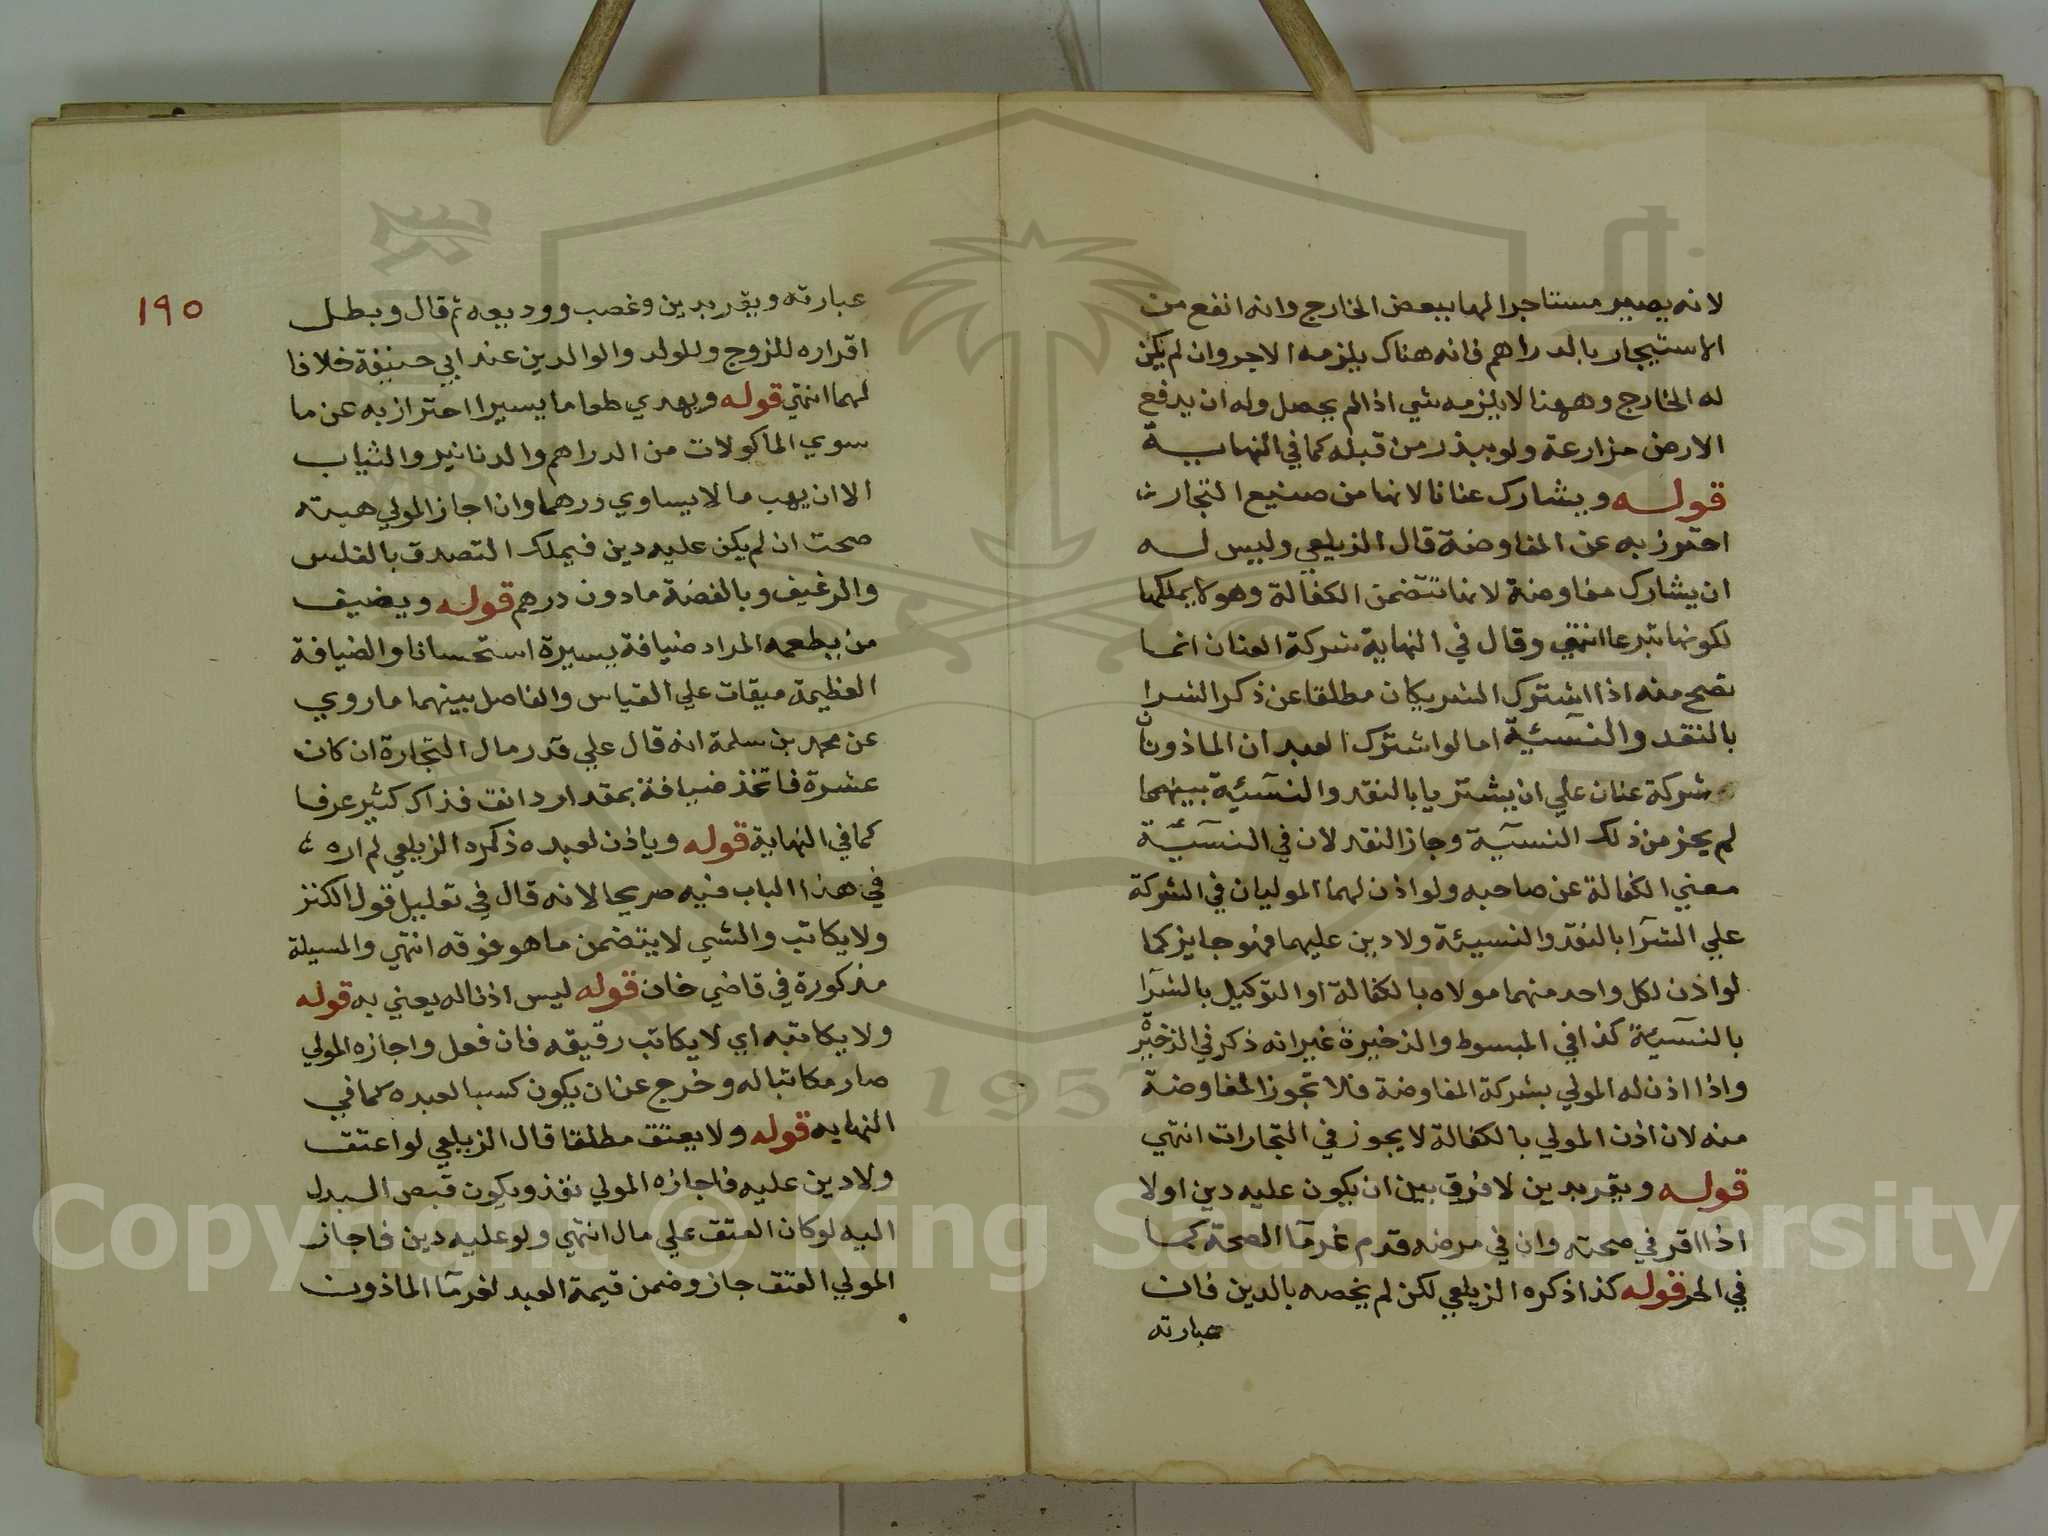 لانه يصير مستاجرا لها ببعض الخارج وانه انفع من
الاستيجار بالدراهم فانه هناك يلزمه الاجر وان لم يكن
له الخارج وههنا لا يلزمه شي اذا لم يحصل وله ان يدفع
الارض مزارعة ولو ببذر من قبله كما في النهاية
قوله ويشارك عنانا لانها من صنيع التجار
احترز به عن المفاوضة قال الزيلعي وليس له
ان يشارك مفاوضة لانها تتضمن الكفالة وهو لا يملكها
لكونها تبرعا انتهي وقال في النهاية شركة العنان انما
تصح منه اذا اشترك الشريكان مطلقا عن ذكر الشرا
بالنقد والنسئية اما لو اشترك العبدان الماذونان
شركة عنان علي ان يشتريا بالنقد والنسئية بينهما
لم يجز من ذلك النسئية وجاز النقد لان في النسئية
معني الكفالة عن صاحبه ولو اذن لهما الموليان في الشركة
علي الشرآ بالنقد والنسيئة ولا دين عليهما فهو جايز كما
لو اذن لكل واحد منهما مولاه بالكفالة او التوكيل بالشرآ
بالنسئية كذا في المبسوط والذخيرة غير انه ذكر في الذخيرة
واذا اذن له المولي بشركة المفاوضة فلا تجوز المفاوضة
منه لان اذن المولي بالكفالة لا يجوز في التجارات انتهي
قوله ويقر بدين لا فرق بين ان يكون عليه دين او لا
اذا اقر في صحته وان في مرضه قدم غرمآ الصحة كما
في الحر قوله كذا ذكره الزيلعي لكن لم يخصه بالدين فان
عبارته
١٩٥
عبارته ويقر بدين وغصب ووديعه ثم قال وبطل
اقراره للزوج وللولد والوالدين عند ابي حنيفة خلافا
لهما انتهي قوله ويهدي طعاما يسيرا احترز به عن ما
سوي الماكولات من الدراهم والدنانير والثياب
الا ان يهب مالا يساوي درهما وان اجاز المولي هبته
صحت ان لم يكن عليه دين فيملك التصدق بالفلس
والرغيف وبالفضة مادون درهم قوله ويضيف
من يطعمه المراد ضيافة يسيرة استحسانا والضيافة
العظيمة مبقات علي القياس والفاصل بينهما ما روي
عن محمد بن سلمة انه قال علي قدر مال التجارة ان كان
عشرة فاتخذ ضيافة بمقدار دانق فذاك كثير عرفا
كما في النهاية قوله وياذن لعبده ذكره الزيلعي لم اره
في هذا الباب فيه صريحا لانه قال في تعليل قول الكنز
ولا يكاتب والشي لا يتضمن ما هو فوقه انتهي والمسيلة
مذكورة في قاضي خان قوله ليس اذنا له يعني به قوله
ولا يكاتبه اي لا يكاتب رقيقه فان فعل واجازه المولي
صار مكاتبا له وخرج عن ان يكون كسبا لعبده كما في
النهايه قوله ولا يعتق مطلقا قال الزيلعي لو اعتق
ولا دين عليه فاجازه المولي نفذ ويكون قبض البدل
اليه لو كان العتق علي مال انتهي ولو عليه دين فاجاز
المولي العتق جاز وضمن قيمة العبد لغرمآ الماذون
1957
Copyright © King Saud University